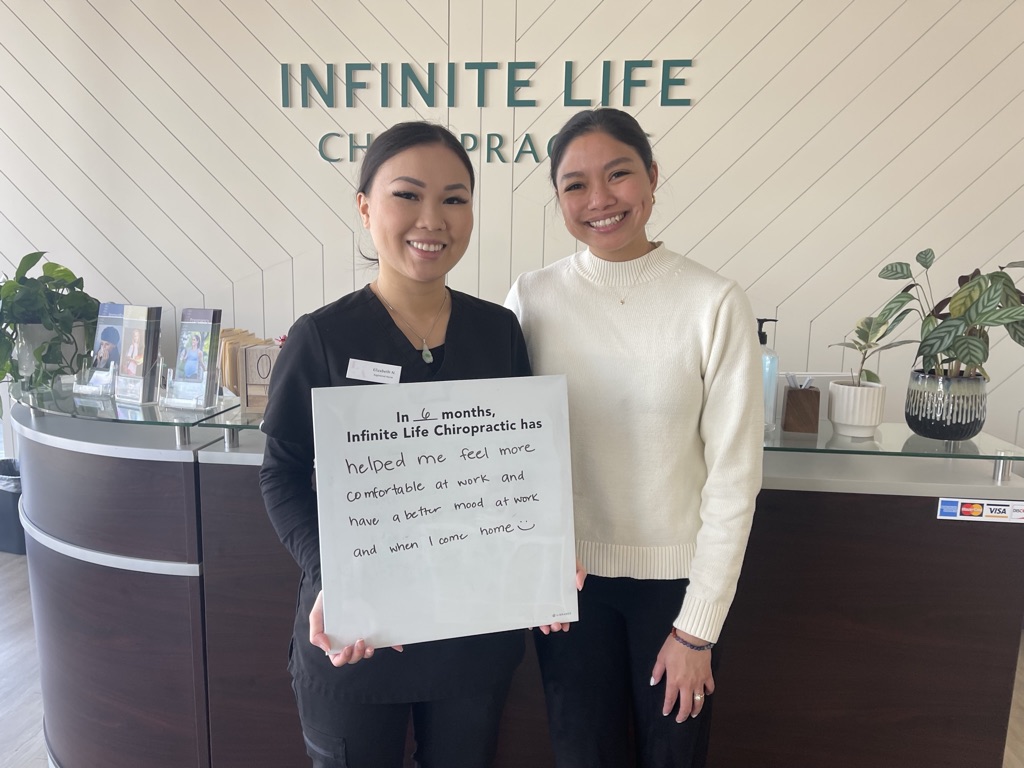 INFINITE LIFE
CH PRAC
Elizabeth N.
In 6 months,
Infinite Life Chiropractic has
helped me feel more
comfortable at work and
have a better mood at work
and when I come home
VISA